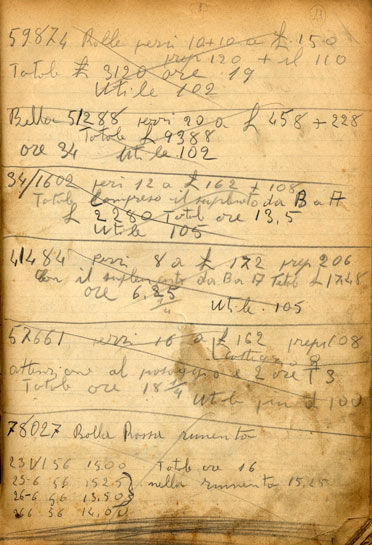 59874 Bolle pezzi 10+10 a £ 150
prep 120 + il 110
Totale £ 3120 ore 19
Utile 102
Bella 51288 pezzi 20 a £ 458 + 228
Totale £ 9388
ore 34 Utile 102
34/1602 pezzi 12 a £ 162 + 108
Totale Compreso il suplemento da B a A
£ 2280 Totale ore 13,5
Utile 105
41484 pezzi 8 a £ 172 prep 206
Con il suplemento da B a A Totale £ 1748
ore 6,25
Utile 105
57661 pezzi 16 a £ 162 prep 108
attenzione al 2 ore
Totale ore 18 1/4
Utile 100
78027 Bolla Rossa
15,00 Totale ore 16
25-6 56 15,25
nella 15,25
26-6 56 13,50